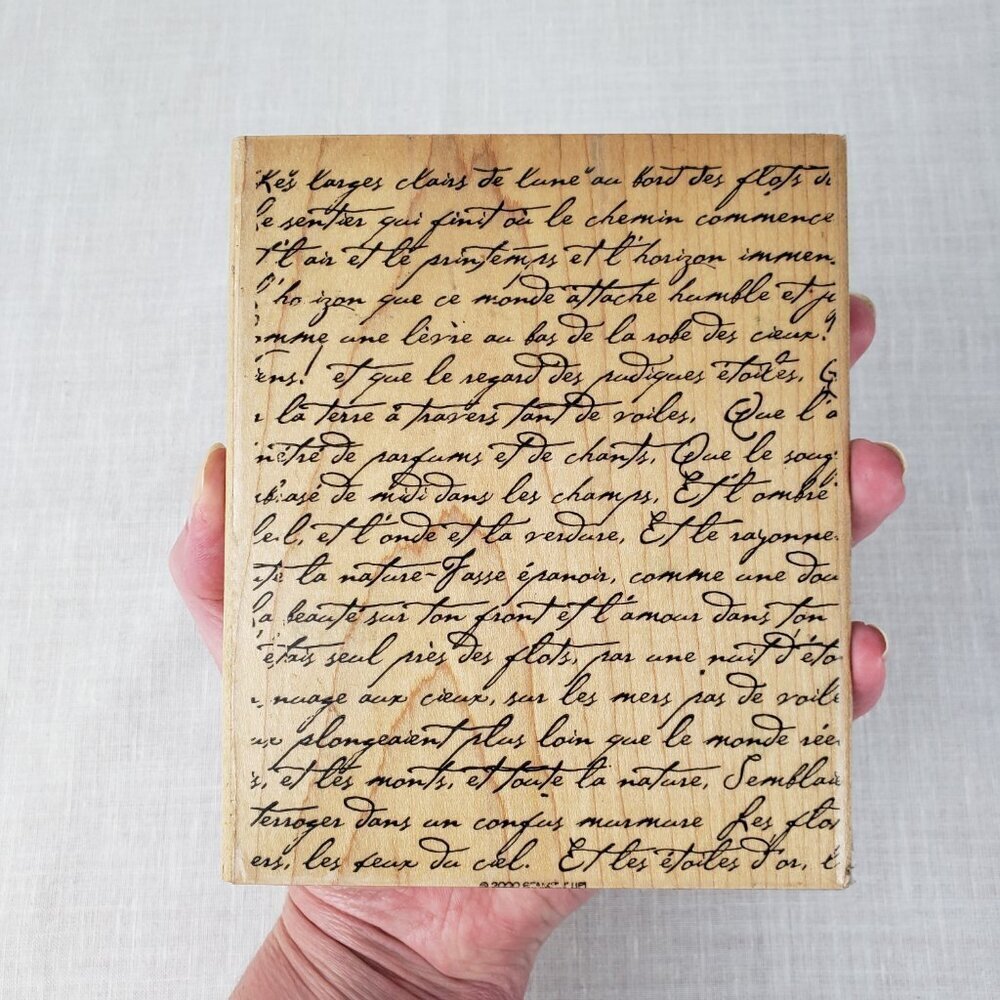 Les larges clairs de lune au bord des flots d
le sentier qui finit où le chemin commence
t l'air et le printemps et l'horizon immen
l'ho izon que ce monde attache humble et j
omme une lèvre au bas de la robe des cieux!
ens! et que le regard des pudiques étoiles,
r la terre à travers tant de voiles, Que l'a
nètre de parfums et de chants, Que le souf
brasé de midi dans les champs, Et l'ombre
leil, et l'onde et la verdure, Et le rayonne
ute la nature-Fasse épanoir, comme une dou
la beauté sur ton front et l'amour dans ton
'étais seul près des flots, par une nuit d'éto
nuage aux cieux, sur les mers pas de voile
ux plongeaient plus loin que le monde rée
s, et les monts, et toute la nature, Semblaie
terroger dans un confus murmure Les flot
ers, les feux du ciel. Et les étoiles d'or, l
© 2000